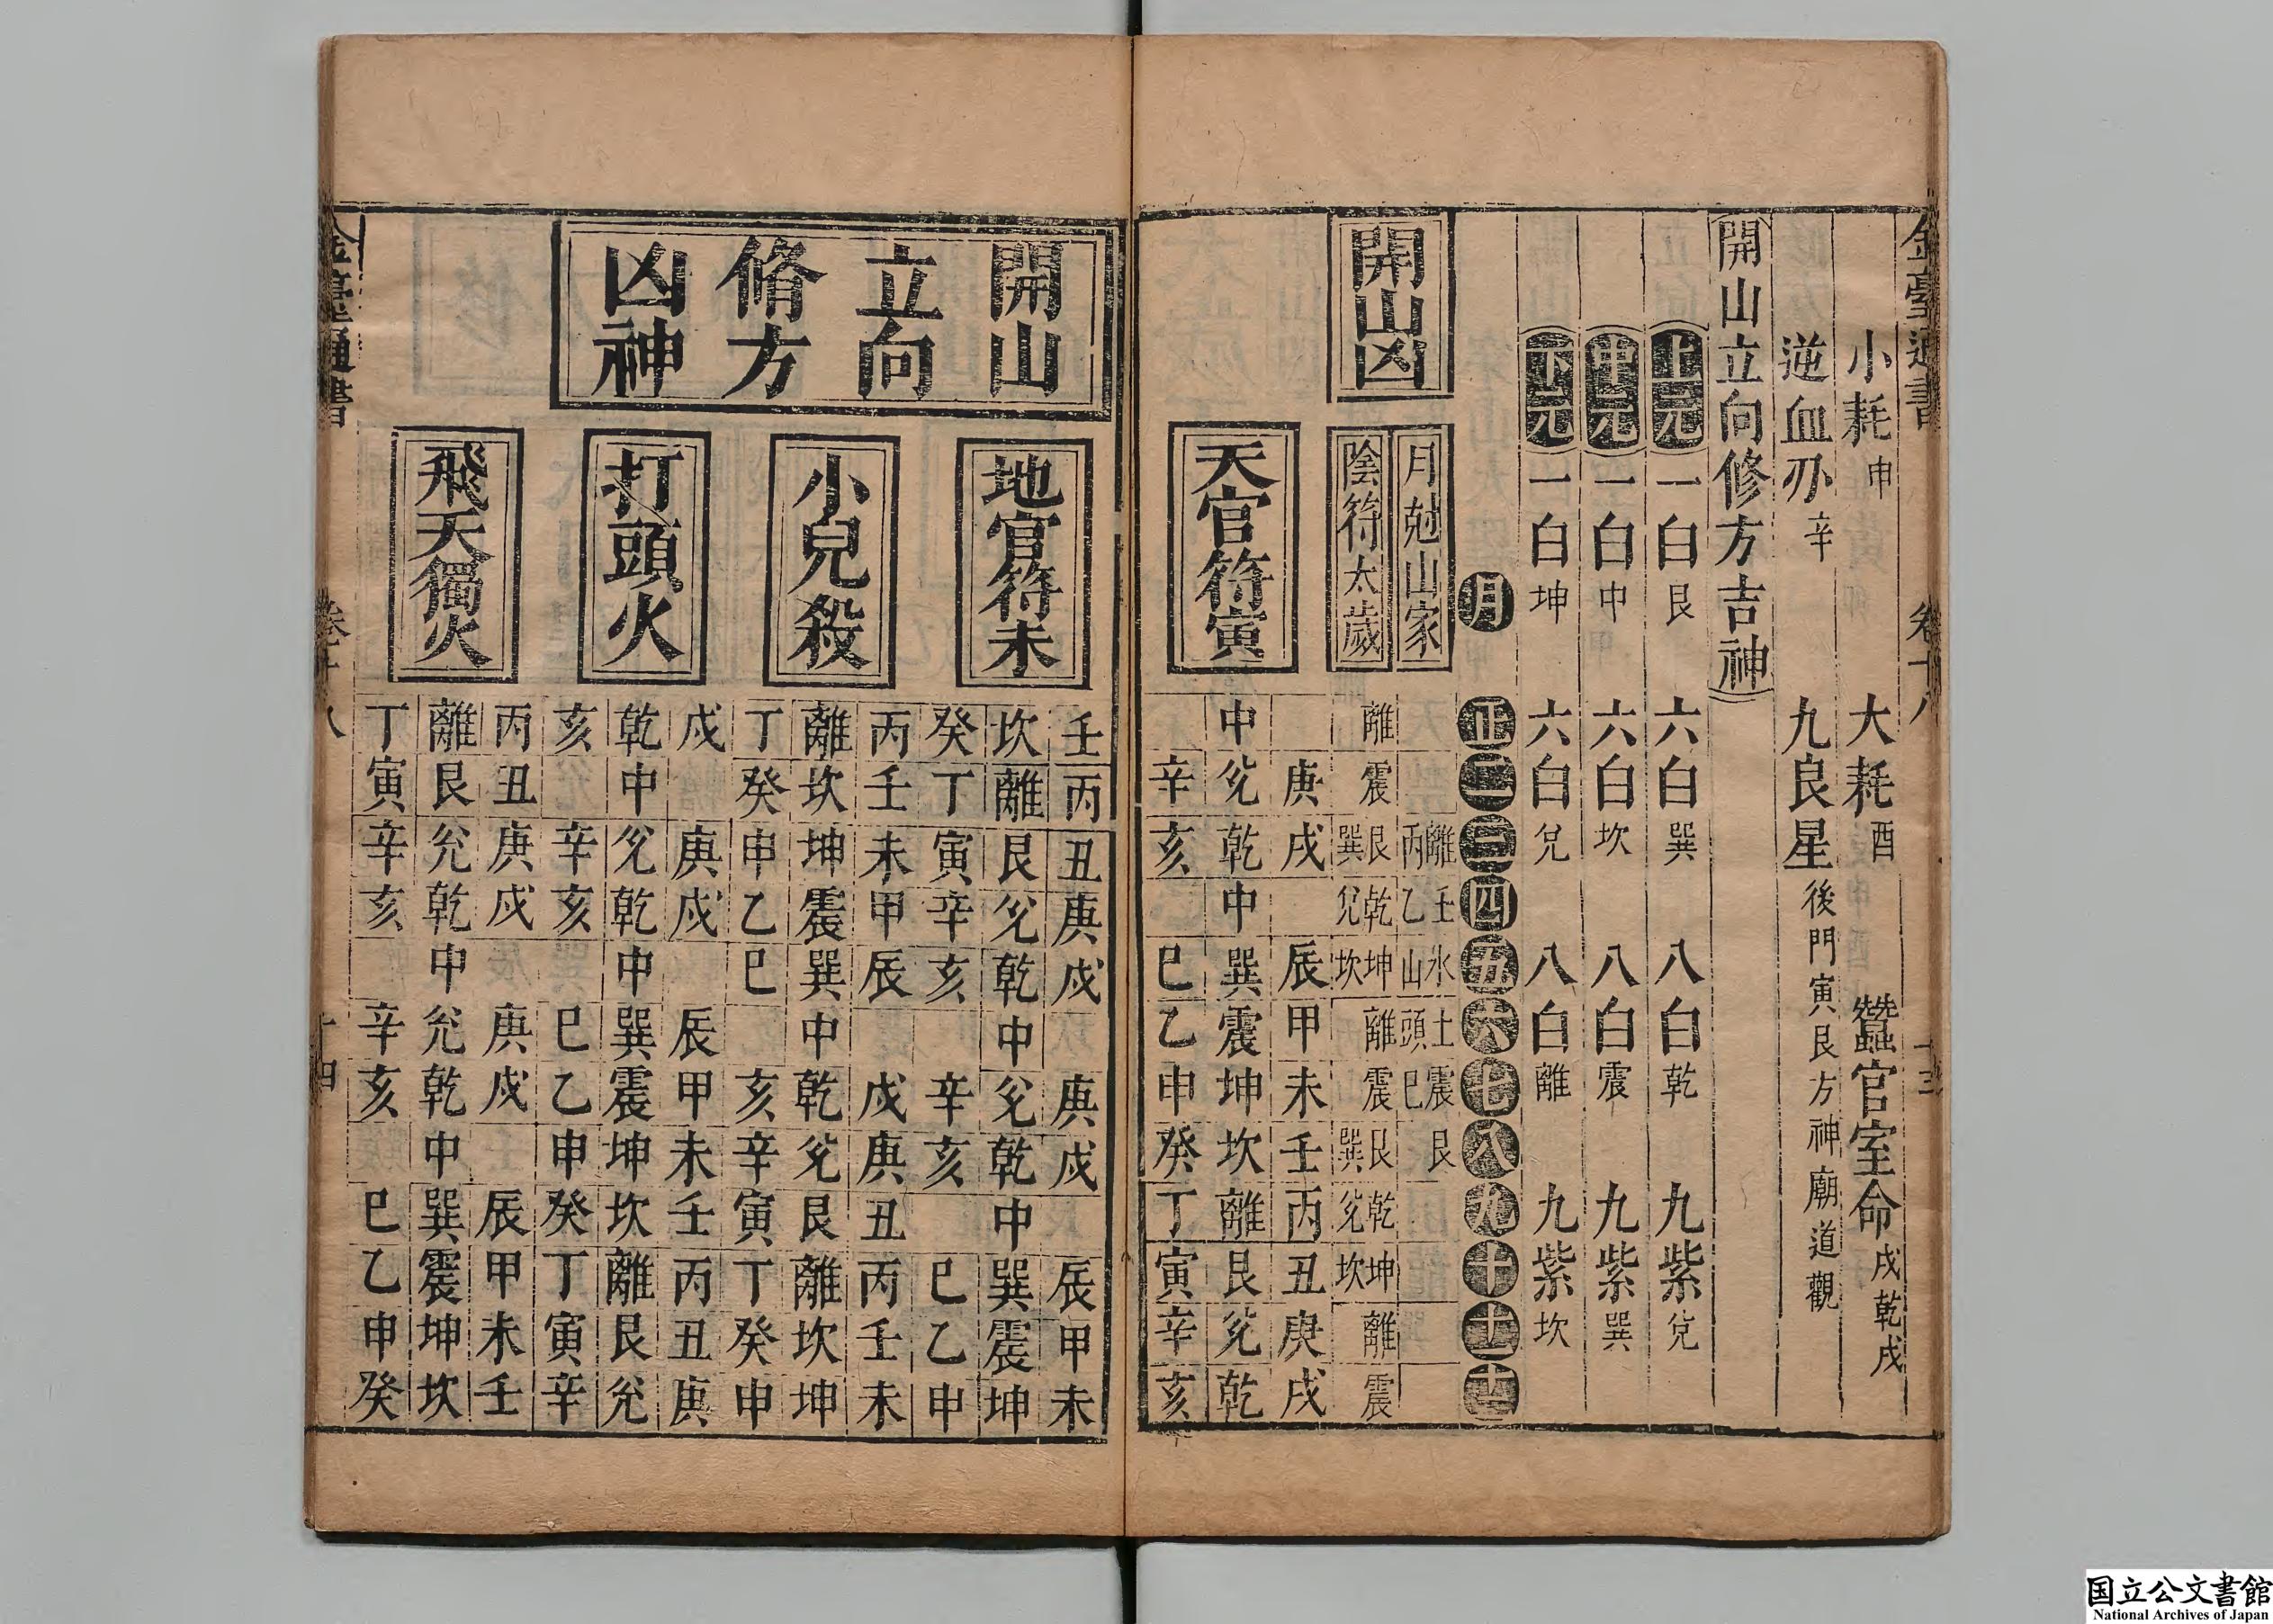 金臺通書 卷十八 十三
小耗申 大耗酉 蠶官室命戌乾戌
逆血刃辛 九良星後門寅艮方神廟道觀
開山立向修方吉神
上元 一白艮 六白巽 八白乾 九紫兌
中元 一白中 六白坎 八白震 九紫巽
下元 一白坤 六白兌 八白離 九紫坎
月 正 二 三 四 五 六 七 八 九 十 十一 十二
開山凶
月尅山家 離丙 壬乙 水山 土頭 震巳 艮
陰符太歲 離 震 艮巽 乾兌 坤坎 離 震 艮巽 乾兌 坤坎 離 震
天官符寅
庚 戌 辰 甲 未 壬 丙 丑 庚 戌
中 兌 乾 中 巽 震 坤 坎 離 艮 兌 乾
辛 亥 巳 乙 申 癸 丁 寅 辛 亥
開山立向脩方凶神
地官符未
壬 丙 丑 庚 戌 庚 戌 辰 甲 未
坎 離 艮 兌 乾 中 兌 乾 中 巽 震 坤
癸 丁 寅 辛 亥 辛 亥 巳 乙 申
小兒殺
丙 壬 未 甲 辰 戌 庚 丑 丙 壬 未
離 坎 坤 震 巽 中 乾 兌 艮 離 坎 坤
丁 癸 申 乙 巳 亥 辛 寅 丁 癸 申
打頭火
戌 庚 戌 辰 甲 未 壬 丙 丑 庚
乾 中 兌 乾 中 巽 震 坤 坎 離 艮 兌
亥 辛 亥 巳 乙 申 癸 丁 寅 辛
飛天獨火
丙 丑 庚 戌 庚 戌 辰 甲 未 壬
離 艮 兌 乾 中 兌 乾 中 巽 震 坤 坎
丁 寅 辛 亥 辛 亥 巳 乙 申 癸
金臺通書 卷十八 十四
国立公文書館
National Archives of Japan